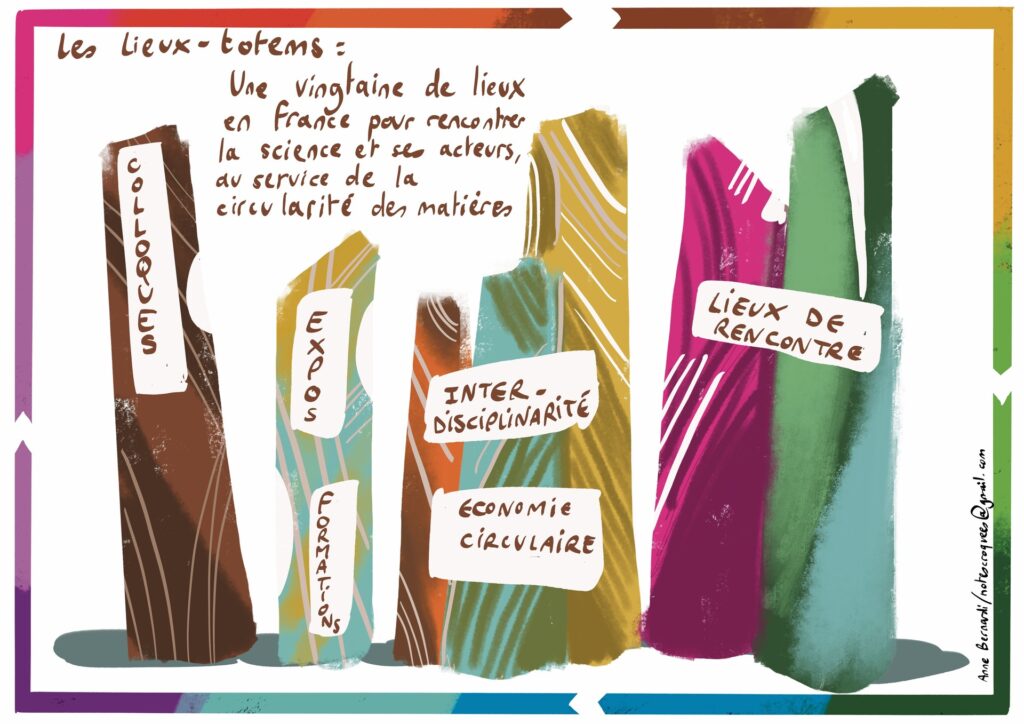 Les Lieux-totems :
Une vingtaine de lieux
en france pour rencontrer
la science et ses acteurs,
au service de la
circularité des matières
COLLOQUES
EXPOS
FORMATIONS
INTER-
DISCIPLINARITÉ
ECONOMIE
CIRCULAIRE
LIEUX DE
RENCONTRE
Anne Bernardi/notescroquees@gmail.com